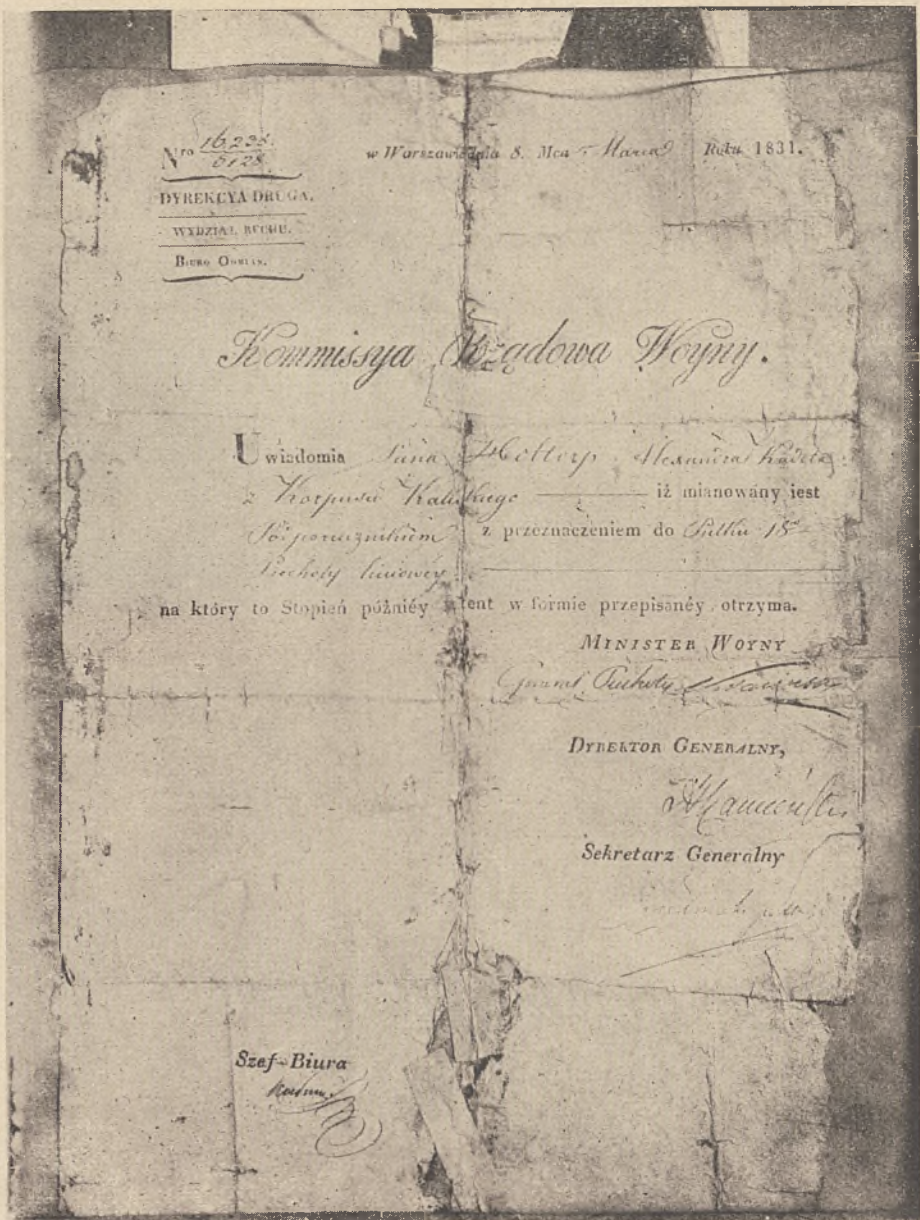 Nro 16,235.
6128.
w Warszawie dnia 8. Mca Marca Roku 1831.
DYREKCYA DRUGA.
WYDZIAŁ RUCHU.
BIURO ODMIAN.
Kommissya Rządowa Woyny.
Uwiadomia Pana Holtorp Alexandra Kadeta
z Korpusu Kaliskiego iż mianowány iest
Podporucznikiem z przeznaczeniem do Pułku 18
Piechoty liniowey
na który to Stopień późniéy patent w formie przepisanéy otrzyma.
MINISTER WOYNY
Generał Piechoty
DYREKTOR GENERALNY,
Sekretarz Generalny
Szef Biura